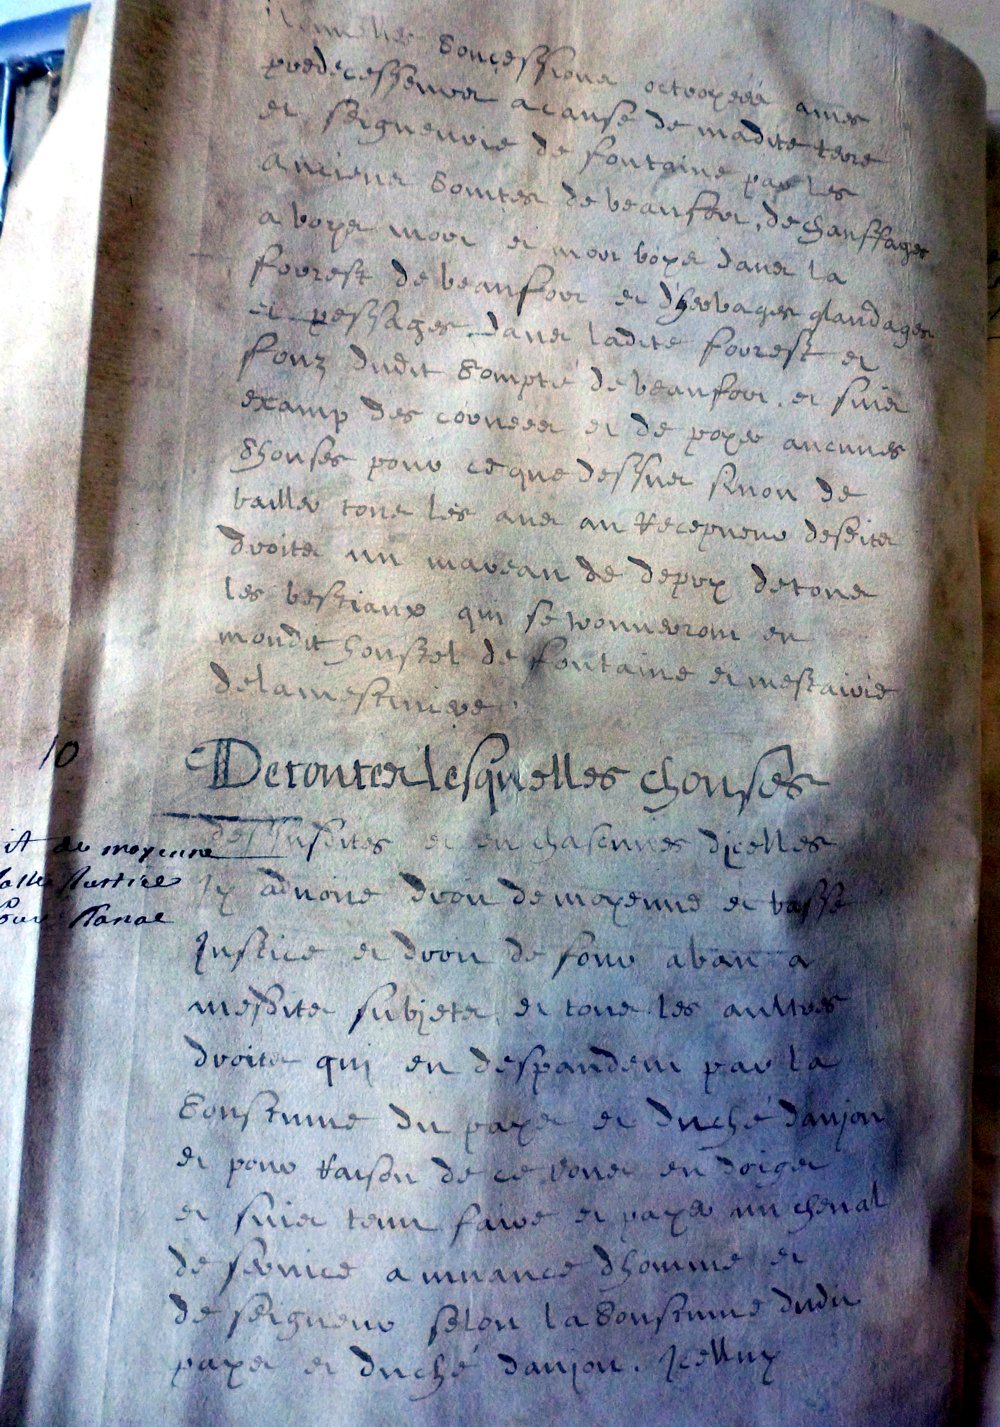 concessions octroyées a mes
predecesseurs a cause de madite terre
et seigneurie de fontaine par les
anciens Comtes de beaufort, de chauffages
a boys mort et mort boys dans la
forrest de beaufort et d'herbages glandages
et pessages dans ladite forrest et
fonz dudit Compté de beaufort, et suis
examp des corvees et de poyer aucunes
Chouses pour ce que dessus sinon de
bailler tous les ans au Recepveur desdits
droits un mareau de depry de tous
les bestiaux qui se trouverront en
mondit houstel de fontaine et mestairie
de la mestiviere.
10
De toutes lesquelles chouses
dessusdites et en chascunes dicelles
Jy advoue droit de moyenne et basse
Justice et droit de four a ban a
mesdits subjets et tous les aultres
droits qui en despandent par la
Coustume du pays et duché danjou
et pour raison de ce vous en doige
et suis tenu faire et payer un cheval
de service a muance dhomme et
de seigneur selon la Coustume dudit
pays et duché danjou. Icelluy
it de moyenne
Justice
four Banal